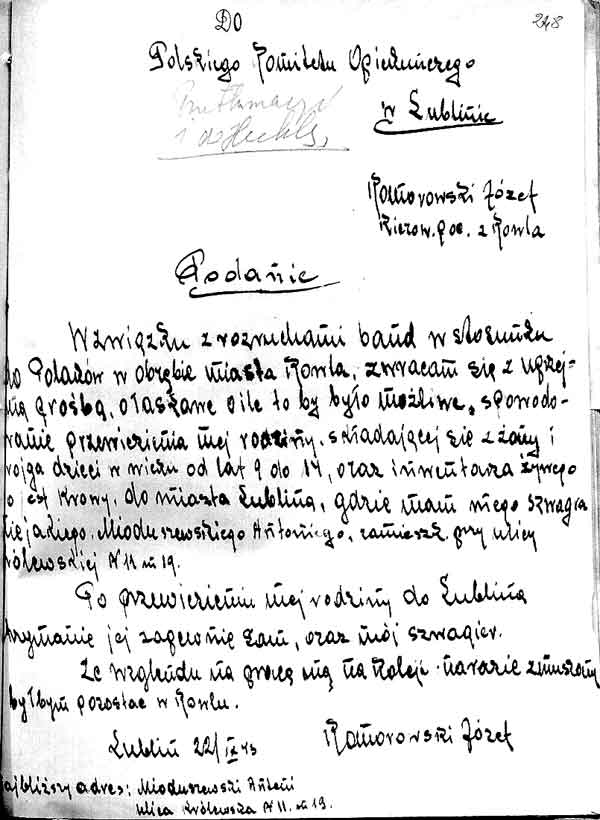 Do
248
Polskiego Komitetu Opiekuńczego
w Lublinie
Przetłumaczyć
Komorowski Józef
Kierow. poc. z Kowla
Podanie
W związku z rozruchami band w stosunku
do Polaków w obrębie miasta Kowla, zwracam się z uprzej-
mą prośbą, o łaskawe o ile to by było możliwe, spowodo-
wanie przewiezienia mej rodziny, składającej się z żony i
rojga dzieci w wieku od lat 9 do 14, oraz inwentarza żywego
o jest krowy, do miasta Lublina, gdzie mam mego szwagra
niejakiego Mioduszewskiego Antoniego, zamieszk. przy ulicy
rólewskiej N 11 m 19.
Po przewiezieniu mej rodziny do Lublina
trzymanie jej zapewnię sam, oraz mój szwagier.
Ze względu na pracę mą na kolei narazie zmuszony
byłbym pozostać w Kowlu.
Lublin 22/IX 43
Komorowski Józef
ajbliższy adres: Mioduszewski Antoni
ulica Królewska N 11. m 19.